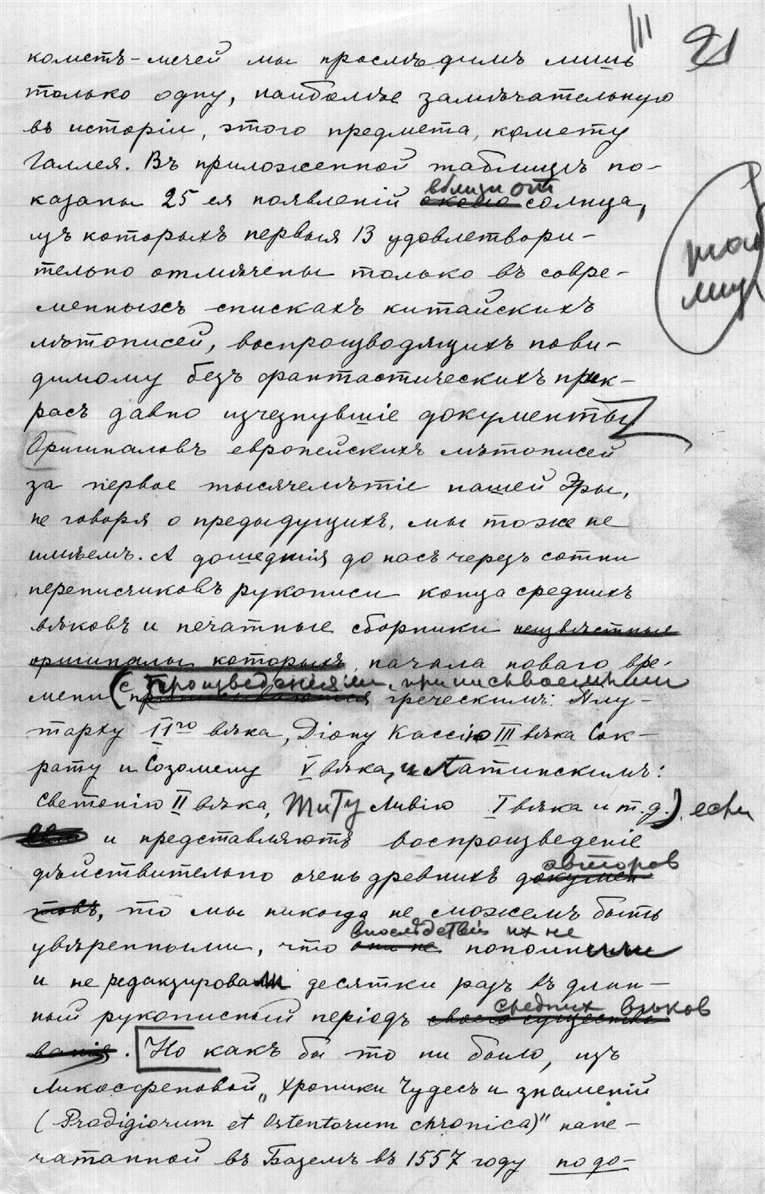 III 21
кометъ-мечей мы прослѣдимъ лишь
только одну, наиболѣе замѣчательную
въ исторіи, этого предмета, комету
Галлея. Въ приложенной таблицѣ по-
казаны 25 ея появленій вблизи от около солнца,
изъ которыхъ первыя 13 удовлетвори-
тельно отмѣчены только въ совре-
менныхъ спискахъ китайскихъ
лѣтописей, воспроизводящихъ пови-
димому безъ фантастическихъ прик-
расъ давно изчезнувшіе документы
Оригиналовъ европейскихъ лѣтописей
за первое тысячелѣтіе нашей Эры,
не говоря о предыдущихъ, мы тоже не
имѣемъ. А дошедшія до насъ черезъ сотни
переписчиковъ рукописи конца среднихъ
вѣковъ и печатные сборники неизвѣстные
оригиналы которыхъ, начала новаго вре-
мени (с произведениями, приписываемыми греческимъ: Плу-
тарху IIго вѣка, Діону Кассію III вѣка Сок-
рату и Созомену V вѣка, и Латинскимъ:
Светонію II вѣка, Титу Ливію I вѣка и т.д.), если
и представляютъ воспроизведеніе
дѣйствительно очень древнихъ авторов докумен
товъ, то мы никогда не сможемъ быть
увѣренными, что впоследствіи их не они не пополнили
и не редакзировали десятки разъ въ длин-
ный рукописный періодъ средних вѣков своего существо
ванія. Но какъ бы то ни было, изъ
Ликосѳеновой „Хроники Чудесъ и знаменій
(Prodigiorum et Ostentorum chronica)" напе-
чатанной въ Базелѣ въ 1557 году по до-
таб
лиц